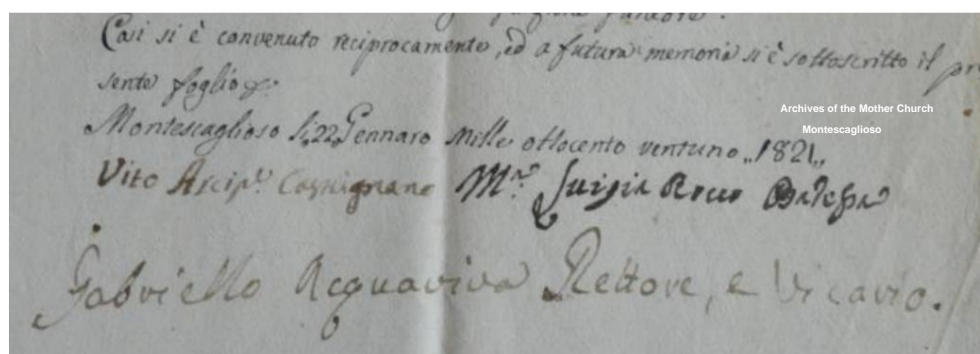 Così si è convenuto reciprocamente, ed a futura memoria si è sottoscritto il pre
sente foglio
Archives of the Mother Church
Montescaglioso
Montescaglioso li 22 Gennaro mille ottocento ventuno „1821„
Vito Arcip.te Cassignano M.a Luigia Rocco Badessa
Gabriello Acquaviva Rettore, e Vicario.